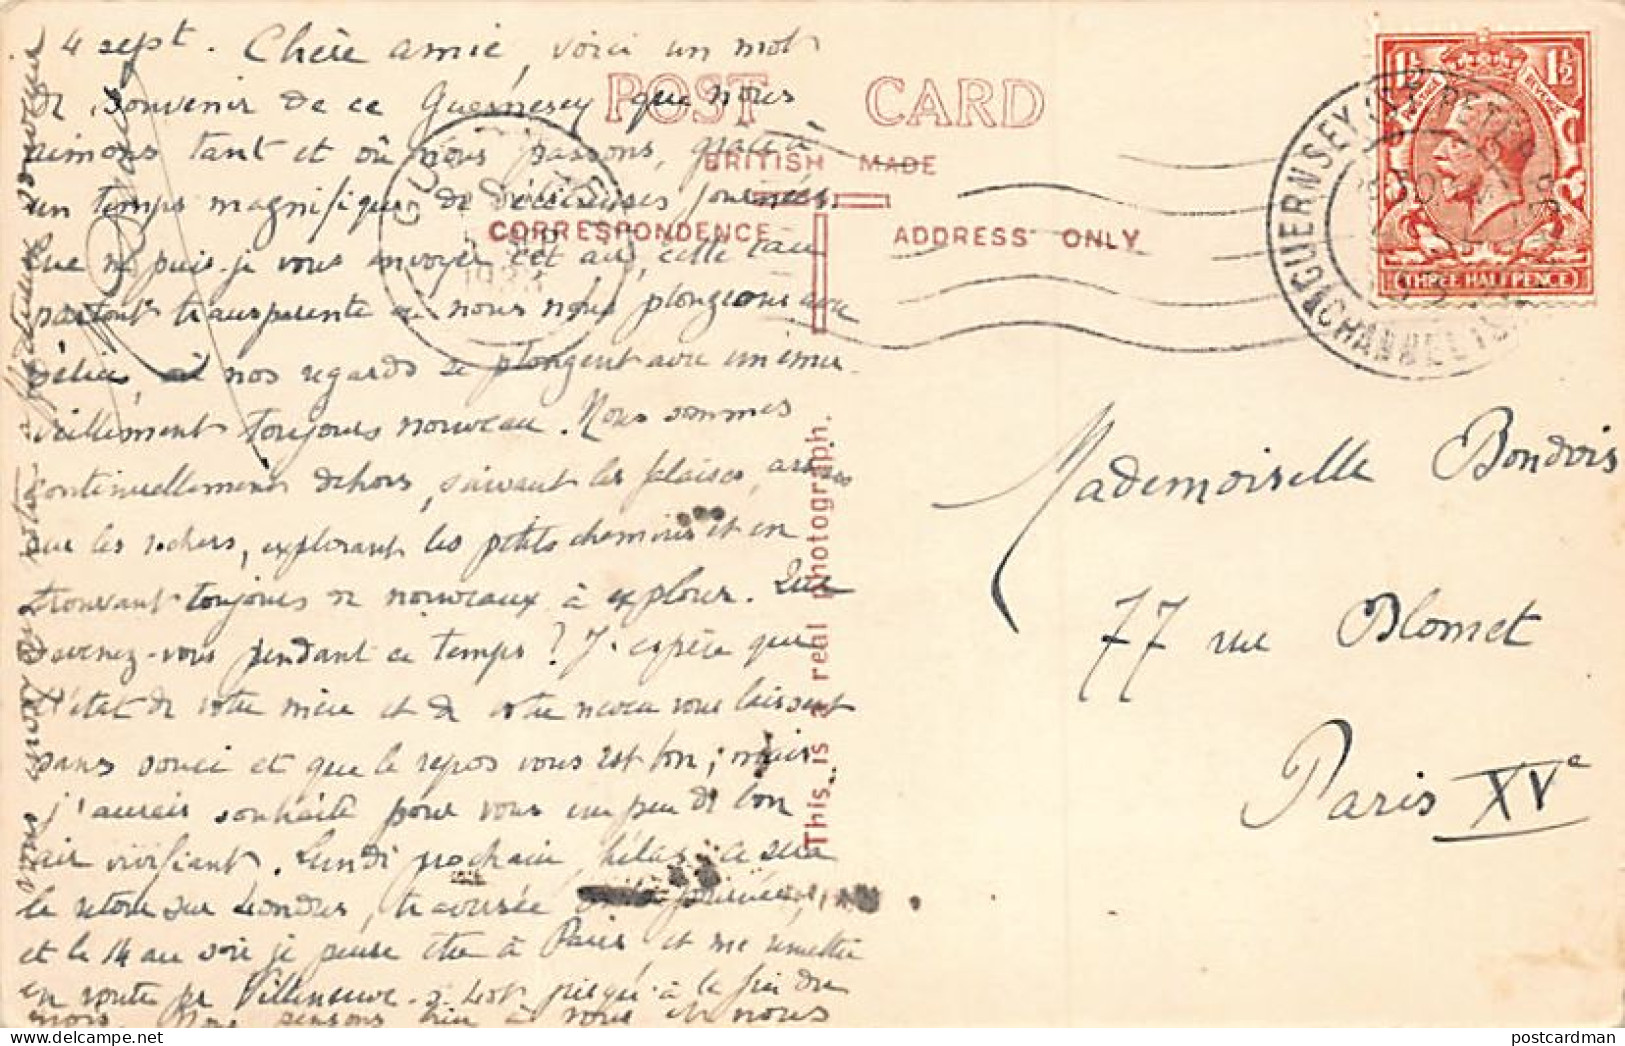 4 sept. Chère amie, voici un mot
de souvenir de ce Guernesey que nous
aimons tant et où nous passons, grâce à
un temps magnifique de délicieuses journées.
Que ne puis-je vous envoyer cet air, cette eau
partout transparente où nous nous plongeons avec
délices, où nos regards se plongent avec un émer
veillement toujours nouveau. Nous sommes
continuellement dehors, suivant les falaises, assis
sur les rochers, explorant les petits chemins et en
trouvant toujours de nouveaux à explorer. Que
devenez-vous pendant ce temps ? J'espère que
l'état de votre mère et de votre neveu vous laissent
sans souci et que le repos vous est bon ; mais
j'aurais souhaité pour vous un peu de bon
air vivifiant. Lundi prochain, hélas, ce sera
le retour sur Londres, traversée de journée,
et le 14 au soir je pense être à Paris et me remettre
en route pr Villeneuve-s-Lot jusqu'à la fin du
mois. Nous pensons bien à vous et nous
vous envoyons notre affectueux souvenir
POST CARD
BRITISH MADE
CORRESPONDENCE
ADDRESS ONLY
This is a real photograph.
1½ 1½
POSTAGE REVENUE
THREE HALF PENCE
GUERNSEY (ST PETER
CHANNEL IS
GU
SEP
1933
Mademoiselle Bondois
77 rue Blomet
Paris XVe
postcardman